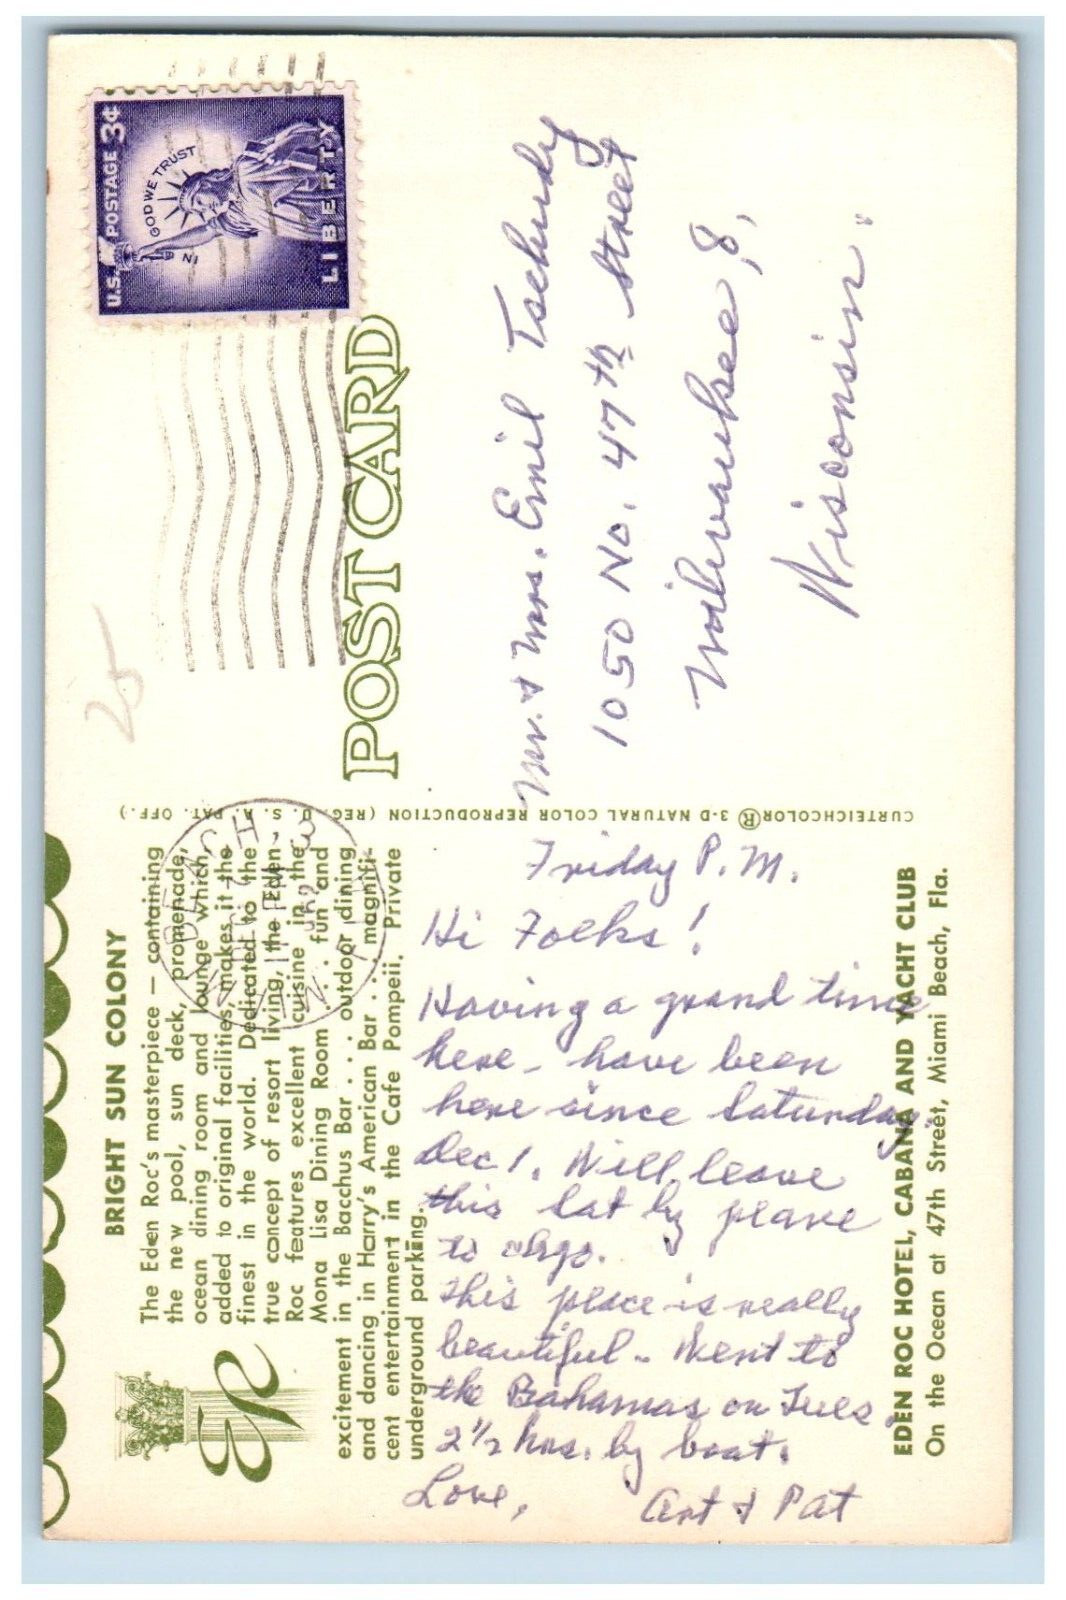 U.S. POSTAGE 3¢
IN GOD WE TRUST
LIBERTY
25
POST CARD
Mr. & Mrs. Emil Tschudy
1050 No. 47th Street
Milwaukee, 8,
Wisconsin.
CURTEICHCOLOR® 3-D NATURAL COLOR REPRODUCTION (REG. U. S. A. PAT. OFF.)
BRIGHT SUN COLONY
The Eden Roc's masterpiece — containing
the new pool, sun deck, promenade,
ocean dining room and lounge which,
added to original facilities, makes it the
finest in the world. Dedicated to the
true concept of resort living, the Eden
Roc features excellent cuisine in the
Mona Lisa Dining Room . . . fun and
excitement in the Bacchus Bar . . . outdoor dining
and dancing in Harry's American Bar . . . magnifi-
cent entertainment in the Cafe Pompeii. Private
underground parking.
ER
Friday P.M.
Hi Folks!
Having a grand time
here - have been
here since Saturday
Dec 1. Will leave
this Sat by plane
to Chgo.
This place is really
beautiful - Went to
the Bahamas on Tues.
2 1/2 hrs. by boat.
Love,
Art & Pat
EDEN ROC HOTEL, CABANA AND YACHT CLUB
On the Ocean at 47th Street, Miami Beach, Fla.